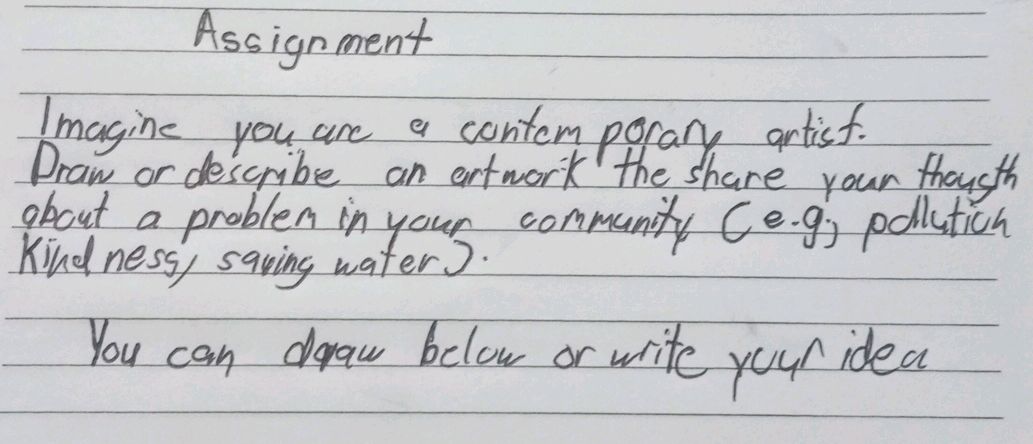 Assignment
Imagine you are a contemporary artist.
Draw or describe an artwork the share your thougth
about a problem in your community (e.g; pollution
Kindness, saving water).
You can draw below or write your idea